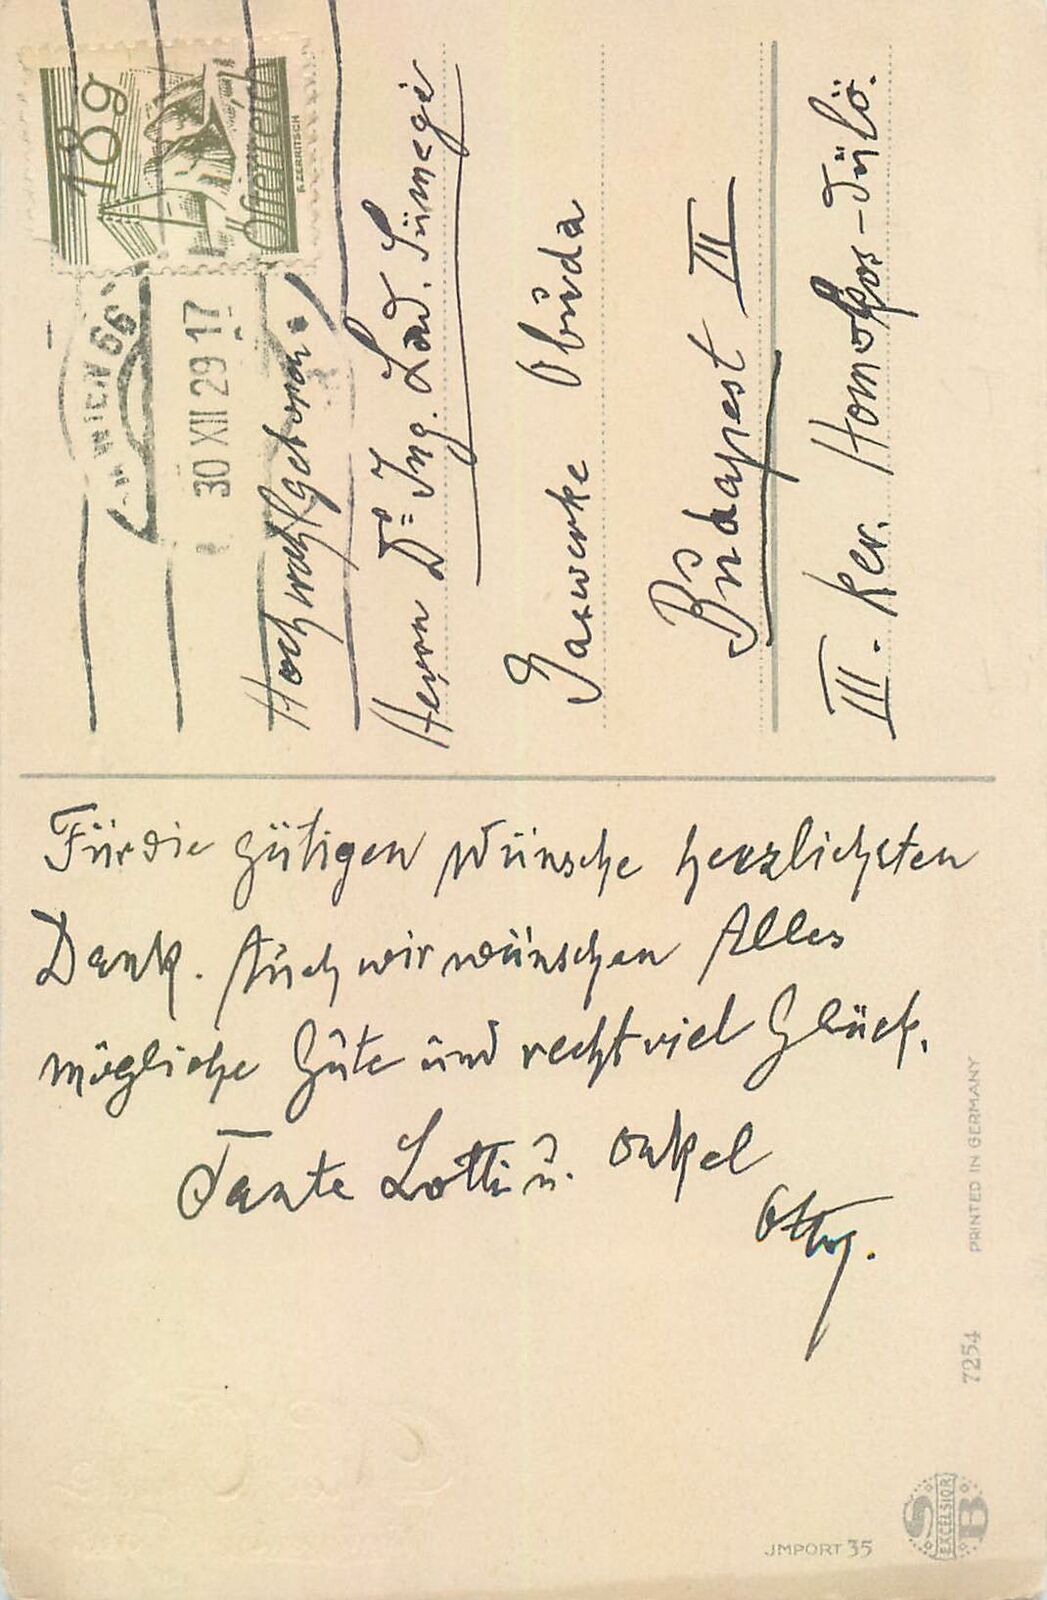 18g
Österreich
WIEN 66
30 XII 29 17
Hochwohlgeboren
Herrn Dr Ing. Lad. Sümegi
Gaswerke Obuda
Budapest III
III. Ker. Homokos-dülö.
Für die gütigen Wünsche herzlichsten
Dank. Auch wir wünschen Alles
mögliche Gute und recht viel Glück.
Tante Lotti u. Onkel
PRINTED IN GERMANY
7254
JMPORT 35
S EXCELSIOR B